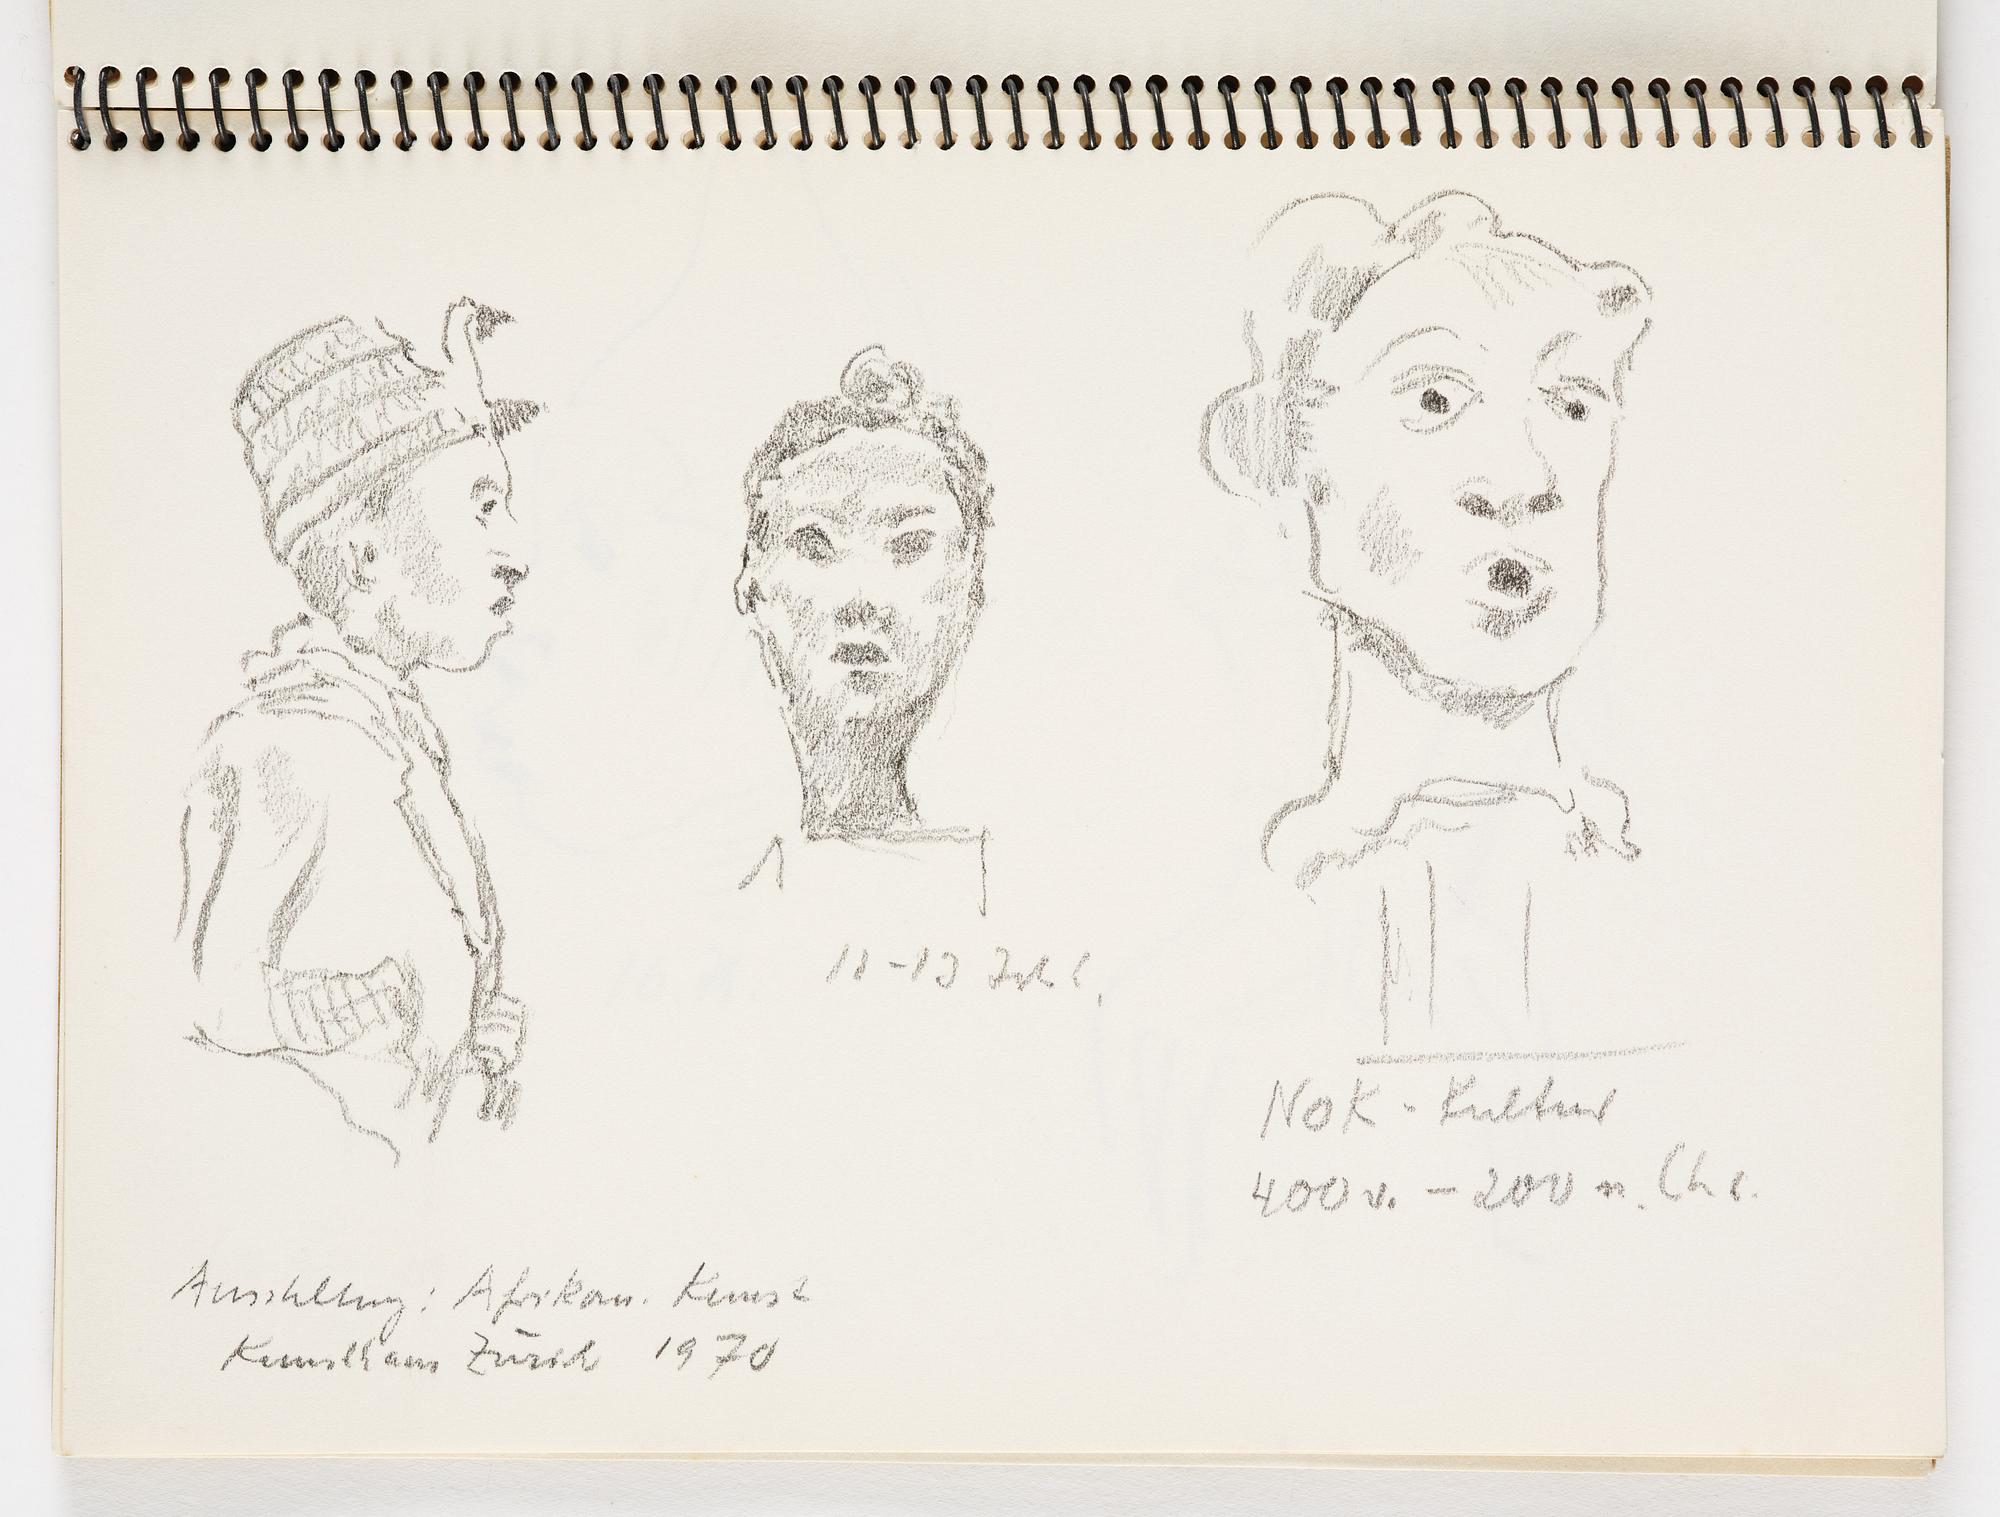 11-13 Jhh.
Nok-Kultur
400 v. - 200 n. Chr.
Ausstellung: Afrikan. Kunst
Kunsthaus Zürich 1970